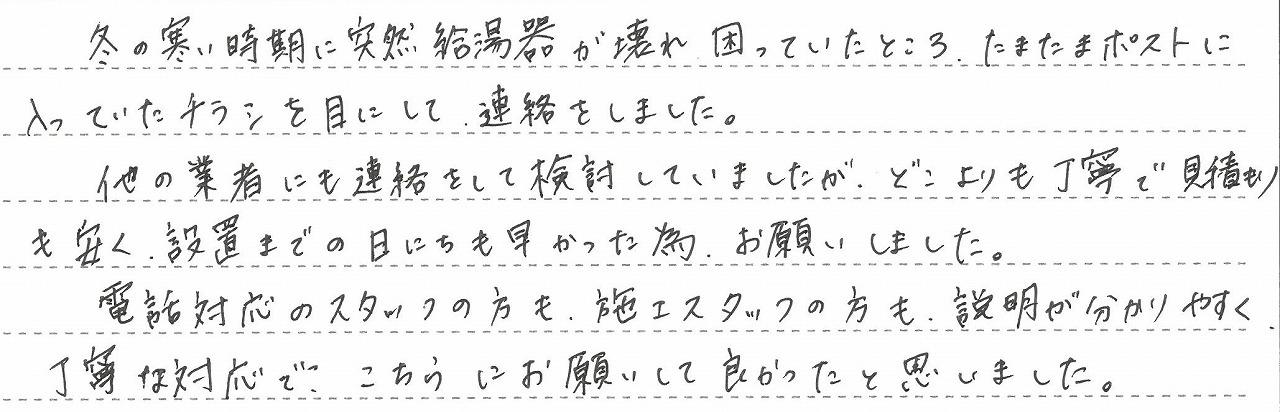 冬の寒い時期に突然給湯器が壊れ、困っていたところ、たまたまポストに
入っていたチラシを目にして、連絡をしました。
他の業者にも連絡をして検討していましたが、どこよりも丁寧で見積もり
も安く、設置までの日にちも早かった為、お願いしました。
電話対応のスタッフの方も、施工スタッフの方も、説明が分かりやすく、
丁寧な対応で、こちらにお願いして良かったと思いました。